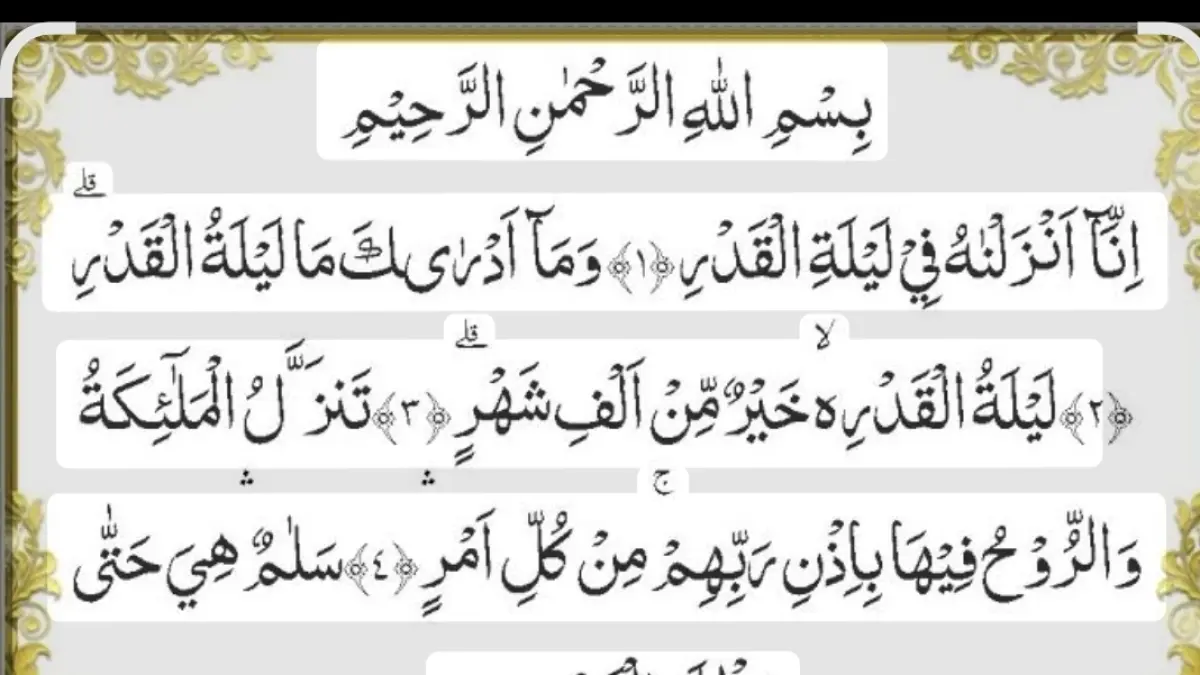 بِسْمِ اللهِ الرَّحْمٰنِ الرَّحِيْمِ
قلے
اِنَّآ اَنْزَلْنٰهُ فِيْ لَيْلَةِ الْقَدْرِ ﴿١﴾ وَمَآ اَدْرٰىكَ مَا لَيْلَةُ الْقَدْرِ
قلے لا
﴿٢﴾ لَيْلَةُ الْقَدْرِ ه خَيْرٌ مِّنْ اَلْفِ شَهْرٍ ﴿٣﴾ تَنَزَّلُ الْمَلٰٓئِكَةُ
ج
وَالرُّوْحُ فِيْهَا بِاِذْنِ رَبِّهِمْ مِنْ كُلِّ اَمْرٍ ﴿٤﴾ سَلٰمٌ هِيَ حَتّٰى